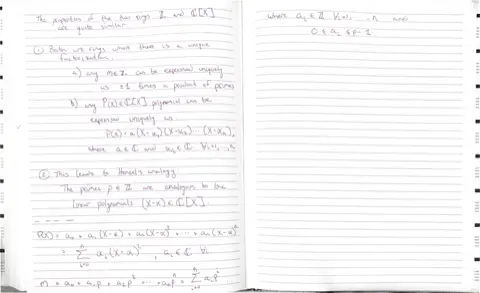 The properties of the two rings ℤ and ℂ[X]
are quite similar
① Both are rings where there is a unique
factorization.
a) any m∈ℤ can be expressed uniquely
as ±1 times a product of primes
b) any P(x)∈ℂ[X] polynomial can be
expressed uniquely as
P(x) = a(X-α₁)(X-α₂)...(X-αₙ),
where a∈ℂ and αᵢ∈ℂ ∀i=1,...,n
② This leads to Hensel's analogy
The primes p∈ℤ are analogous to the
linear polynomials (X-α)∈ℂ[X].
P(X) = a₀ + a₁(X-α) + a₂(X-α)² + ... + aₙ(X-α)ⁿ
= Σⁿᵢ₌₀ aᵢ(X-α)ⁱ, aᵢ∈ℂ ∀i
m = a₀ + a₁p + a₂p² + ... + aₙpⁿ = Σⁿᵢ₌₀ aᵢpⁱ
where aᵢ∈ℤ ∀i=1,..,n and
0 ≤ aᵢ ≤ p-1